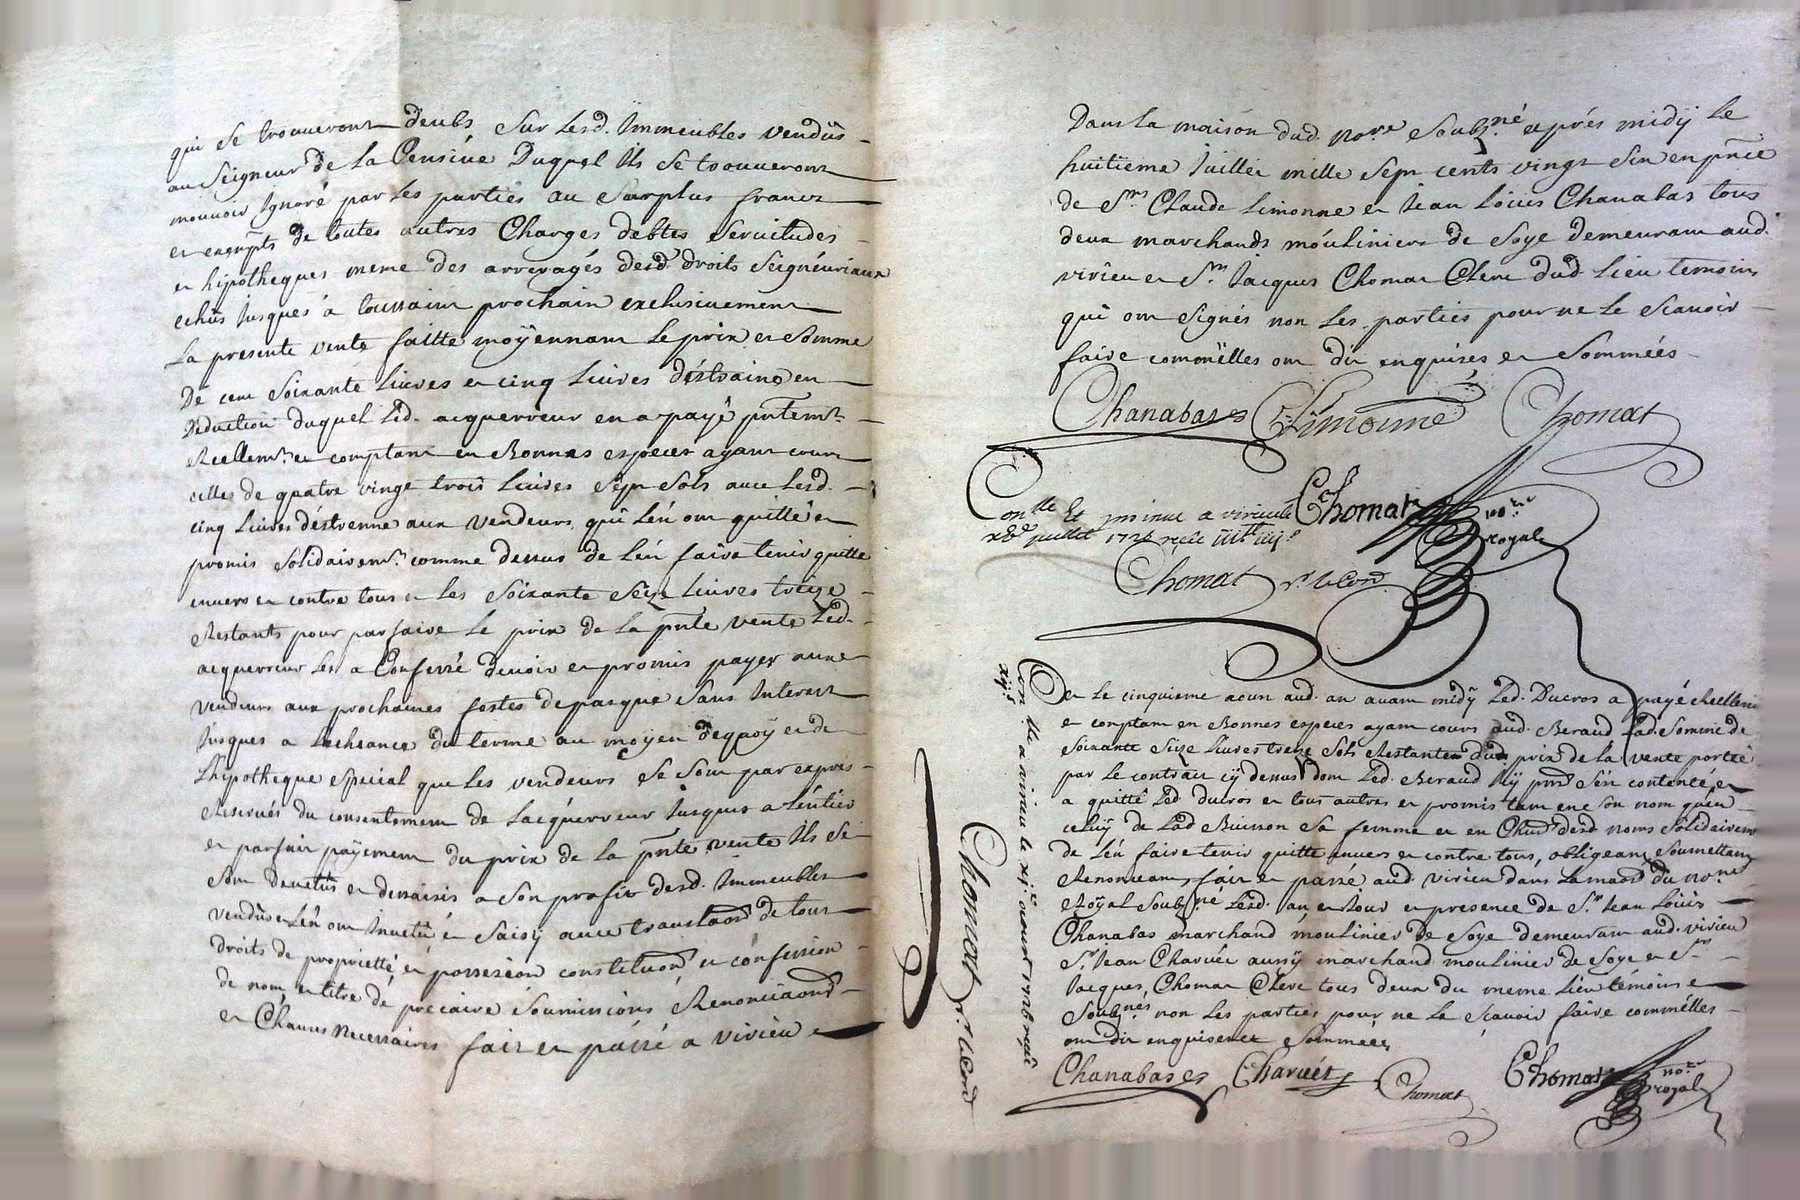 qui se trouueront deubs sur lesd. Immeubles vendus
au Seigneur de la Censive Duquel ils se trouueront
mouuoir Ignoré par les parties au surplus francz
et exempts de toutes autres Charges debtes Seruitudes
et hipotheques meme des arreragés desd. droits Seigneuriaux
echus Jusques à toussaint prochain exclusiuement
La presente vente faitte moÿennant le prix et somme
De cent soixante liures et cinq liures d'éstraine en
Déduction duquel led. acquerreur en a payé pntemt.
Réellemt. et comptant en Bonnes especes ayant cours
celles de quatre vingt trois liures sept sols auec lesd.
cinq liures d'éstrenne aux vendeurs qui l'én ont quitté et
promis solidairemt. comme dessus de l'én faire tenir quitte
enuers et contre tous et les soixante seize liures treize
Restants pour parfaire le prix de la pnte vente led.
acquerreur les a Confessé deuoir et promis payer aux
vendeurs aux prochaines festes de pasque sans Interest
Jusques a l'echeance du terme au moÿen dequoÿ et de
L'hipotheque special que les vendeurs se sont par expres
Reserués du consentement de l'acquerreur Jusques a l'éntier
et parfait paÿement du prix de la pnte vente ils se
sont deuetus et dessaisis a son profit desd. Immeubles
vendus et l'én ont Inuetu et saisÿ auec translaon de tous
droits de proprietté et possession constitution et confession
de nom et titre de précaire soumissions Renonciaons
et Clauses necessaires fait et passé a virieu et
Dans la maison dud. nore. soubzné. et prés midÿ le
huitieme Juillet mille sept cents vingt six en pnce
de Srs. Claude Limonne et Jean Loüis Chanabas tous
deux marchands moúliniers de soye demeurant aud.
virieu et Sr. Jacques Chomat Clerc dud. lieu temoins
qui ont signés non les parties pour ne le scauoir
faire comme élles ont dit enquises et sommées
Chanabas Limonne Chomat
Chomat nore. royal
Conlle. Et a virieu le
juillet 1726 reçu
Chomat
Et le cinquieme aoust aud. an auant midÿ led. Ducros a payé réellemt.
et comptant en Bonnes especes ayant cours aud. Beraud lad. somme de
soixante seize liures treze sols Restanten dud. prix de la vente portée
par le contract cÿ dessus dont led. Beraud s'én contenté et
a quitté led. Ducros et tous autres et promis tant en son nom qu'én
celuÿ de lad. Buisson sa femme et en Chun. desd. noms solidairemt.
de l'én faire tenir quitte enuers et contre tous, obligeant soumettant
Renonceant, fait et passé aud. virieu dans la maon. du nore.
Royal soubzné. lesd. an et Jour et presence de Sr. Jean Loüis
Chanabas marchand moulinier de soye demeurant aud. virieu
Sr. Jean Charuét aussÿ marchand moulinier de soye et Sr.
Jacques Chomat Clerc tous deux du meme lieu témoins
soubznés. non les parties pour ne le scauoir faire comme élles
ont dit enquises et sommées
Chanabas Charuét Chomat Chomat nore. royal
Con. lle. a virieu le aoust 1726 reçu
Chomat